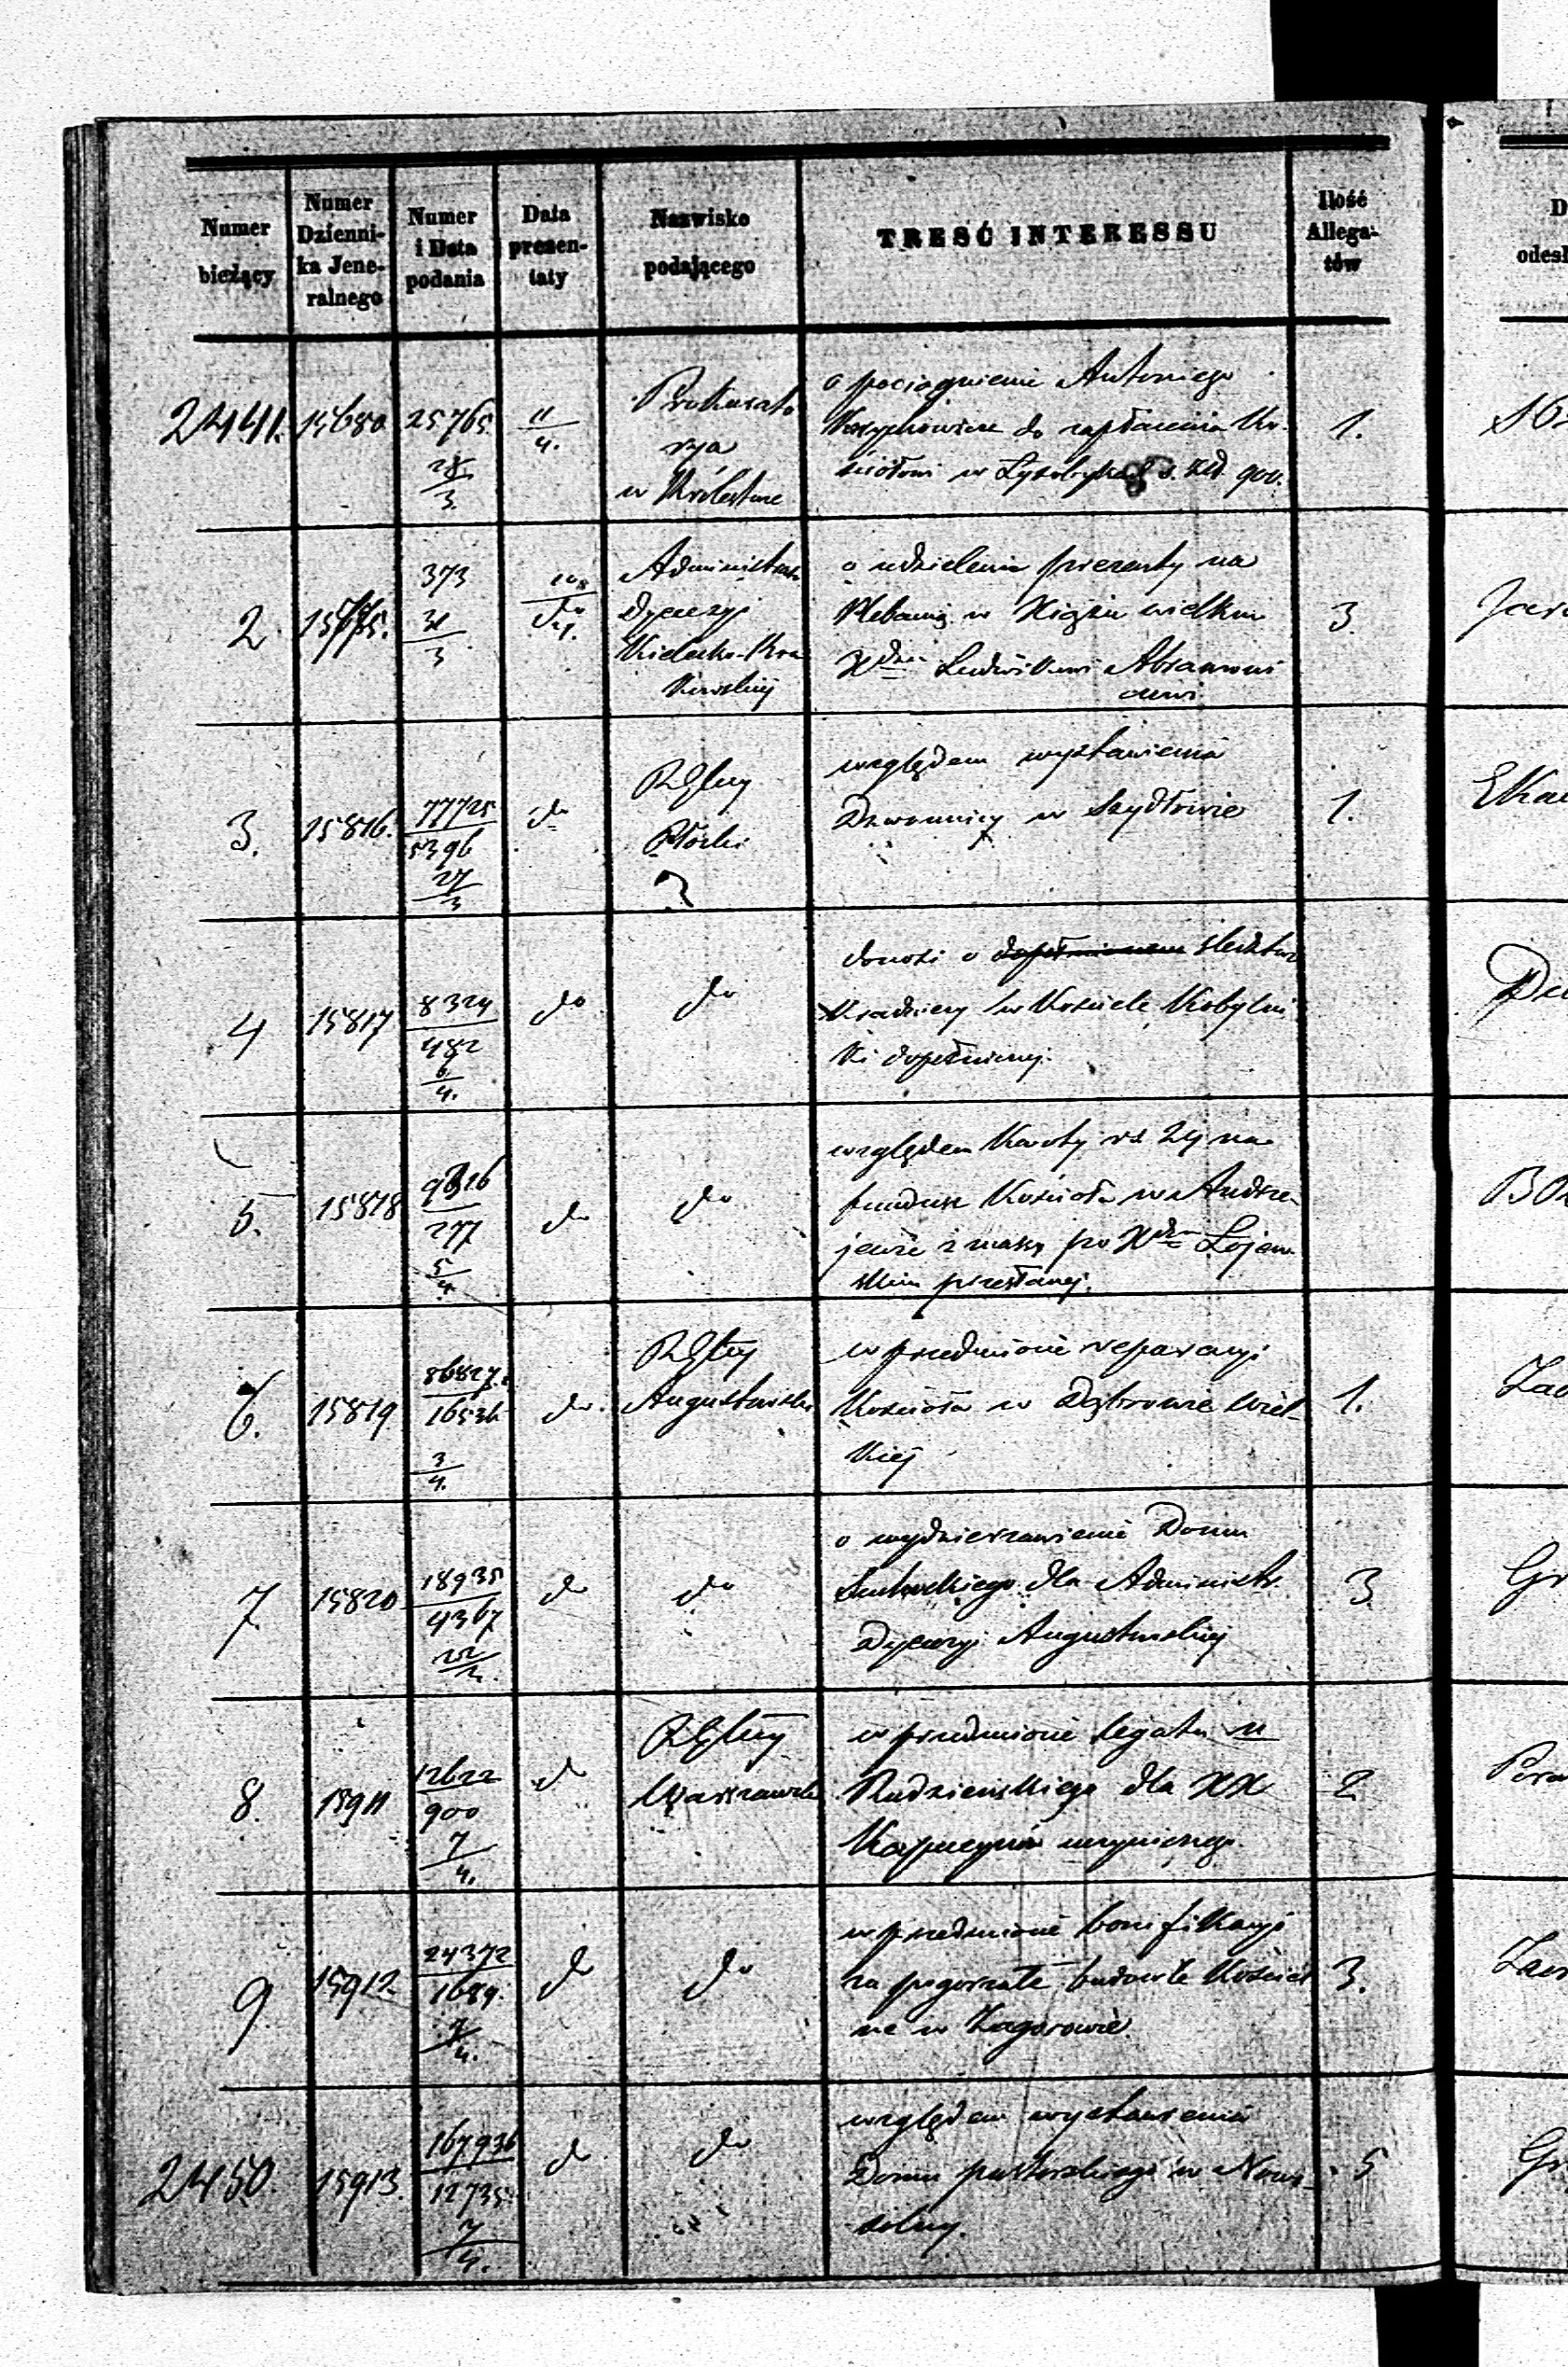 Numer bieżący | Numer Dziennika Jeneralnego | Numer i Data podania | Data prezentaty | Nazwisko podającego | TREŚĆ INTERESSU | Ilość Allegatów
D
odesł
2441. 15680 25765 28/3. 11/4. Prokurato
rya
w Królestwie
o pociągnienie Antoniego
do zapłacenia Ko
ściołowi w 900.
1.
2. 373 31/3 do
Administrator
Dyecezyi
Kielecko-Kra
kowskiej
o udzielenie prezenty na
Plebanią w Xiążu wielkim
Xdzu Ludwikowi Abramowi
czowi
3.
3. 15816. 77725/5396 27/3 do
RGlny
Płocki
względem wystawienia
Dzwonnicy w Szydłowie
1.
4 15817 8324/482 6/4. do do
donosi o dopełnionem śledztwie
Kradzieży w Kościele Kobylni
ki dopełnionej.
5. 15818 9816/277 5/4. do do
względem Kwoty rs na
fundusz Kościoła w Andrze
jewie z massy po Xdzu Łojew
skim przesłanej.
6. 15819 86827/16536 3/4. do.
RGlny
Augustowski
w przedmiocie reparacyi
Kościoła w Dąbrowie Wiel-
kiej
1.
7. 15820 18935/4367 22/3. do do
o wydzierżawienie Domu
dla Administr.
Dyecezyi Augustowskiej
3
8. 15911 12622/900 7/4. do
RGlny
Warszawski
w przedmiocie legatu
Rudzieńskiego dla XX
Kapucynów uczynionego.
2
9. 15912. 24372/1689. 7/4. do do
w przedmiocie bonifikacyi
za pogorzałe budowle Kościel
ne w Zagorowie.
3.
2450. 15913. 167936/12735. 7/4. do do
względem wystawienia
Domu pastorskiego w Nowo-
solny.
5